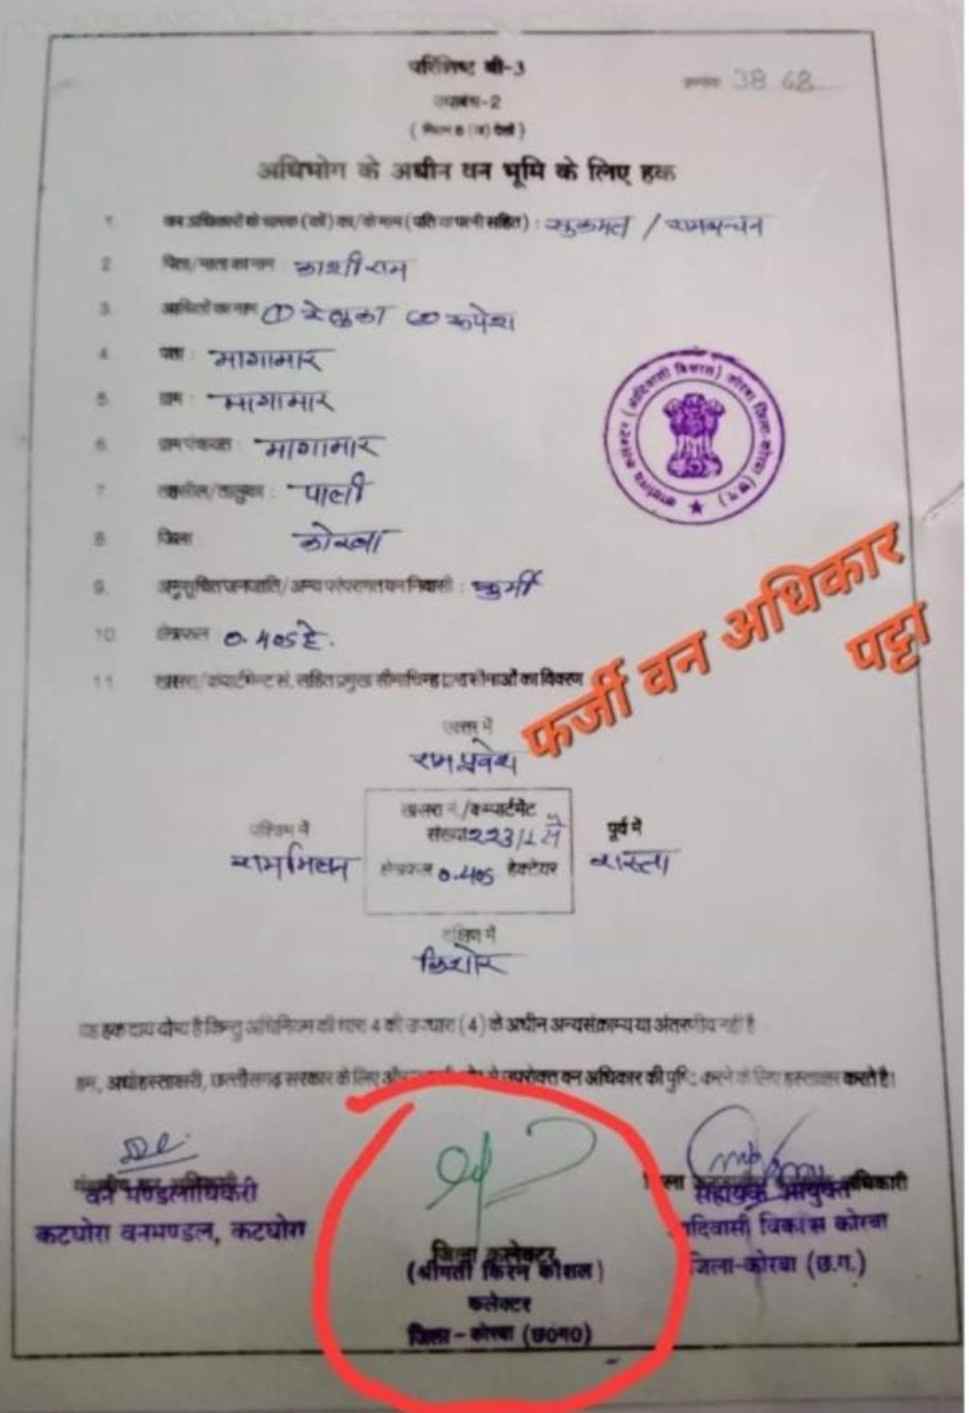 परिशिष्ट बी-3
क्रमांक 3868
उपाबंध-2
( नियम 8 (ज) देखें )
अधिभोग के अधीन वन भूमि के लिए हक
1. वन अधिकारों के धारक (कों) का/के नाम ( पति या पत्नी सहित ) : सुकमत / रामबचन
2. पिता/माता का नाम काशीराम
3. आश्रितों का नाम ① रेणुका ② रूपेश
4. पता : मागामार
5. ग्राम : मागामार
6. ग्राम पंचायत : मागामार
7. तहसील/तालुका : पाली
8. जिला कोरबा
9. अनुसूचित जनजाति/ अन्य परंपरागत वन निवासी : कुर्मी
10. क्षेत्रफल 0.405 हे.
11. खसरा/कंपार्टमेन्ट सं. सहित प्रमुख सीमाचिन्ह द्वारा सीमाओं का विवरण
कार्यालय कलेक्टर (आदिवासी विकास) कोरबा जिला-कोरबा (छ.ग.)
फर्जी वन अधिकार
पट्टा
उत्तर में
रामप्रवेश
खसरा नं./कम्पार्टमेंट
संख्या 223/1 में
क्षेत्रफल 0.405 हेक्टेयर
पश्चिम में
राममिलन
पूर्व में
रास्ता
दक्षिण में
किशोर
यह हक दाय योग्य है किन्तु अधिनियम की धारा 4 की उपधारा (4) के अधीन अन्यसंक्राम्य या अंतरणीय नहीं है
हम, अधोहस्ताक्षरी, छत्तीसगढ़ सरकार के लिए और उपरोक्त वन अधिकार की पुष्टि करने के लिए हस्ताक्षर करते है।
वन मण्डलाधिकारी
कटघोरा वनमण्डल, कटघोरा
जिला कलेक्टर
(श्रीमती किरण कौशल)
कलेक्टर
जिला - कोरबा (छ०ग०)
सहायक आयुक्त
आदिवासी विकास कोरबा
जिला-कोरबा (छ.ग.)